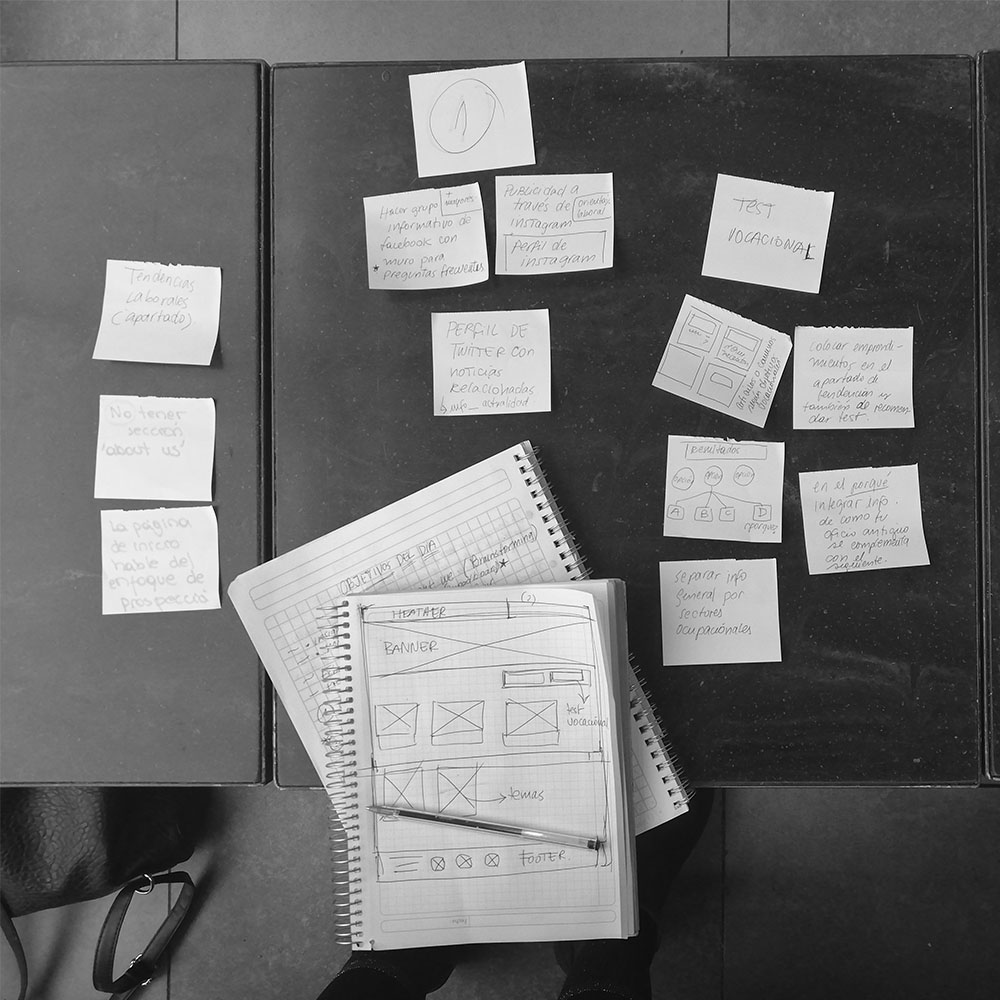 1
Hacer grupo
informativo de
facebook con
muro para
* preguntas frecuentes
Publicidad a
través de
instagram
laboral
Perfil de
instagram
TEST
VOCACIONAL
Tendencias
Laborales
(apartado)
PERFIL DE
TWITTER con
noticias
Relacionadas
↳ info_ actualidad
colocar emprendi-
mientos en el
apartado de
tendencias y
también de recomen
dar test.
No tener
sección
'about us'
Resultados
opción opción opción
A B C D
en el porqué
integrar info.
de como tu
oficio antiguo
se complementa
con el
siguiente.
La página
de inicio
hable del
enfoque de
prospección
separar info
general por
sectores
ocupacionales
OBJETIVOS DEL DIA
(Brainstorming)
HEATHER
(2)
BANNER
test
vocacional
temas
FOOTER.
Fecha